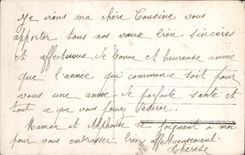 Je viens ma chère Cousine vous
apporter tous nos vœux bien sincères
et affectueux de bonne et heureuse année
que l'année qui commence soit pour
vous une année de parfaite santé et
tout ce que vous pouvez désirer.
Maman et Alphonse se joignent à moi
pour vous embrasser bien affectueusement.
Thérèse